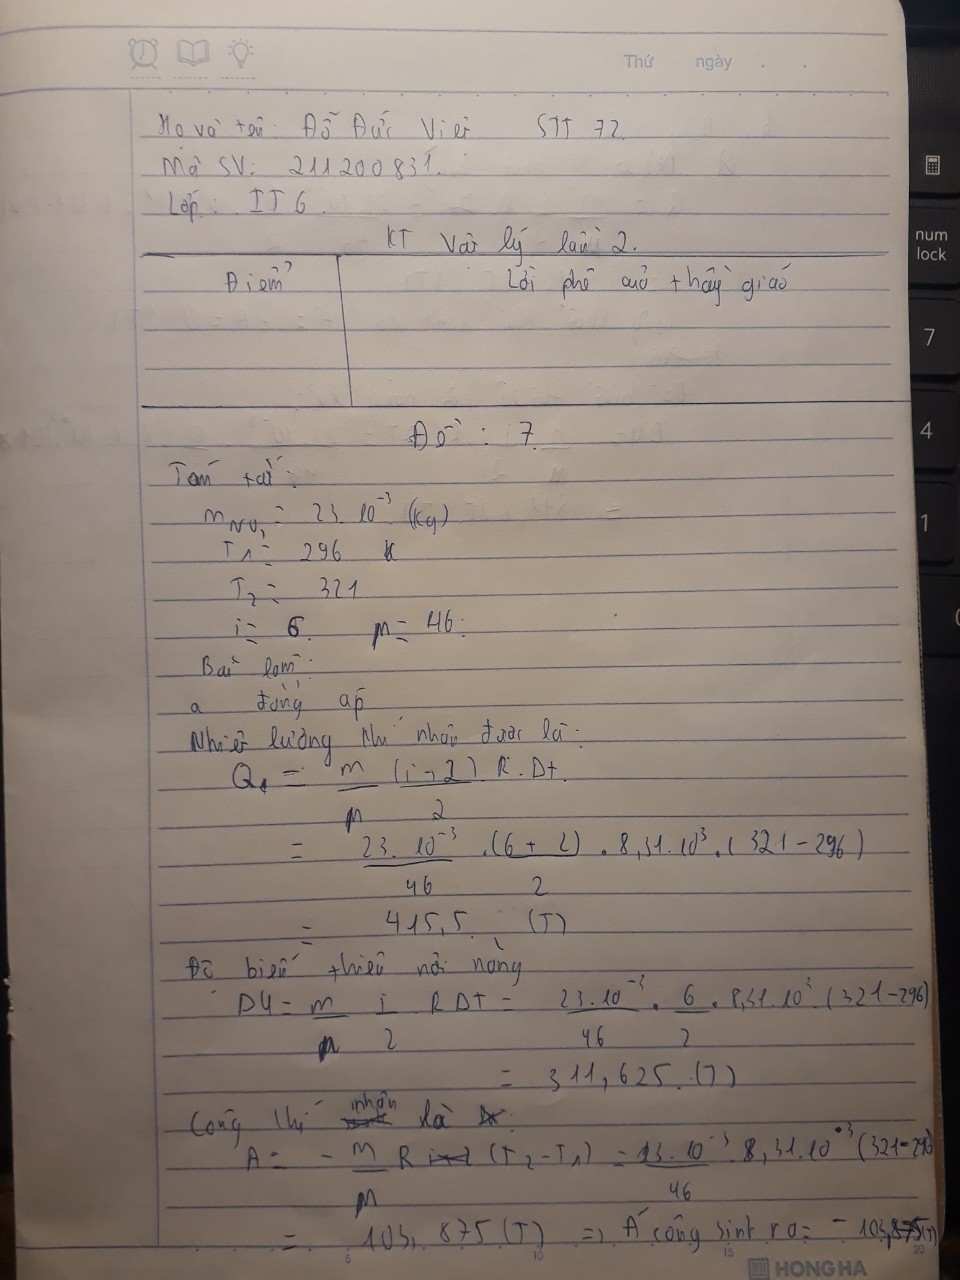 Thứ ngày . .
Họ và tên: Đỗ Đức Việt STT 72.
Mã SV: 211200831.
Lớp IT6.
KT Vật lý lần 2.
Điểm Lời phê của thầy giáo
Đề : 7
Tóm tắt:
m_NO₂ = 23.10⁻³ (Kg)
T₁ = 296 K
T₂ = 321
i = 6. μ = 46.
Bài làm:
a đẳng áp
Nhiệt lượng khí nhận được là:
Q₁ = m/μ (i+2)/2 R.Dt.
= 23.10⁻³/46 .(6+2)/2 . 8,31.10³.(321-296)
= 415,5 (J)
Độ biến thiên nội năng
DU = m/μ i/2 R Dt = 23.10⁻³/46 . 6/2 . 8,31.10³.(321-296)
= 311,625.(J)
Công khí nhận là
A = - m/μ R (T₂-T₁) = 23.10⁻³/46 8,31.10³ (321-296)
= 103,875(J) => A công sinh ra = - 103,875(J)
5 10 15 20
HONG HA